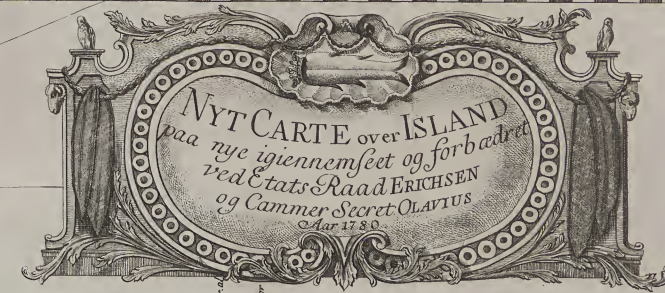 NYT CARTE over ISLAND
paa nye igiennemseet og forbædret
ved Etats Raad ERICHSEN
og Cammer Secret: OLAVIUS
Aar 1780.